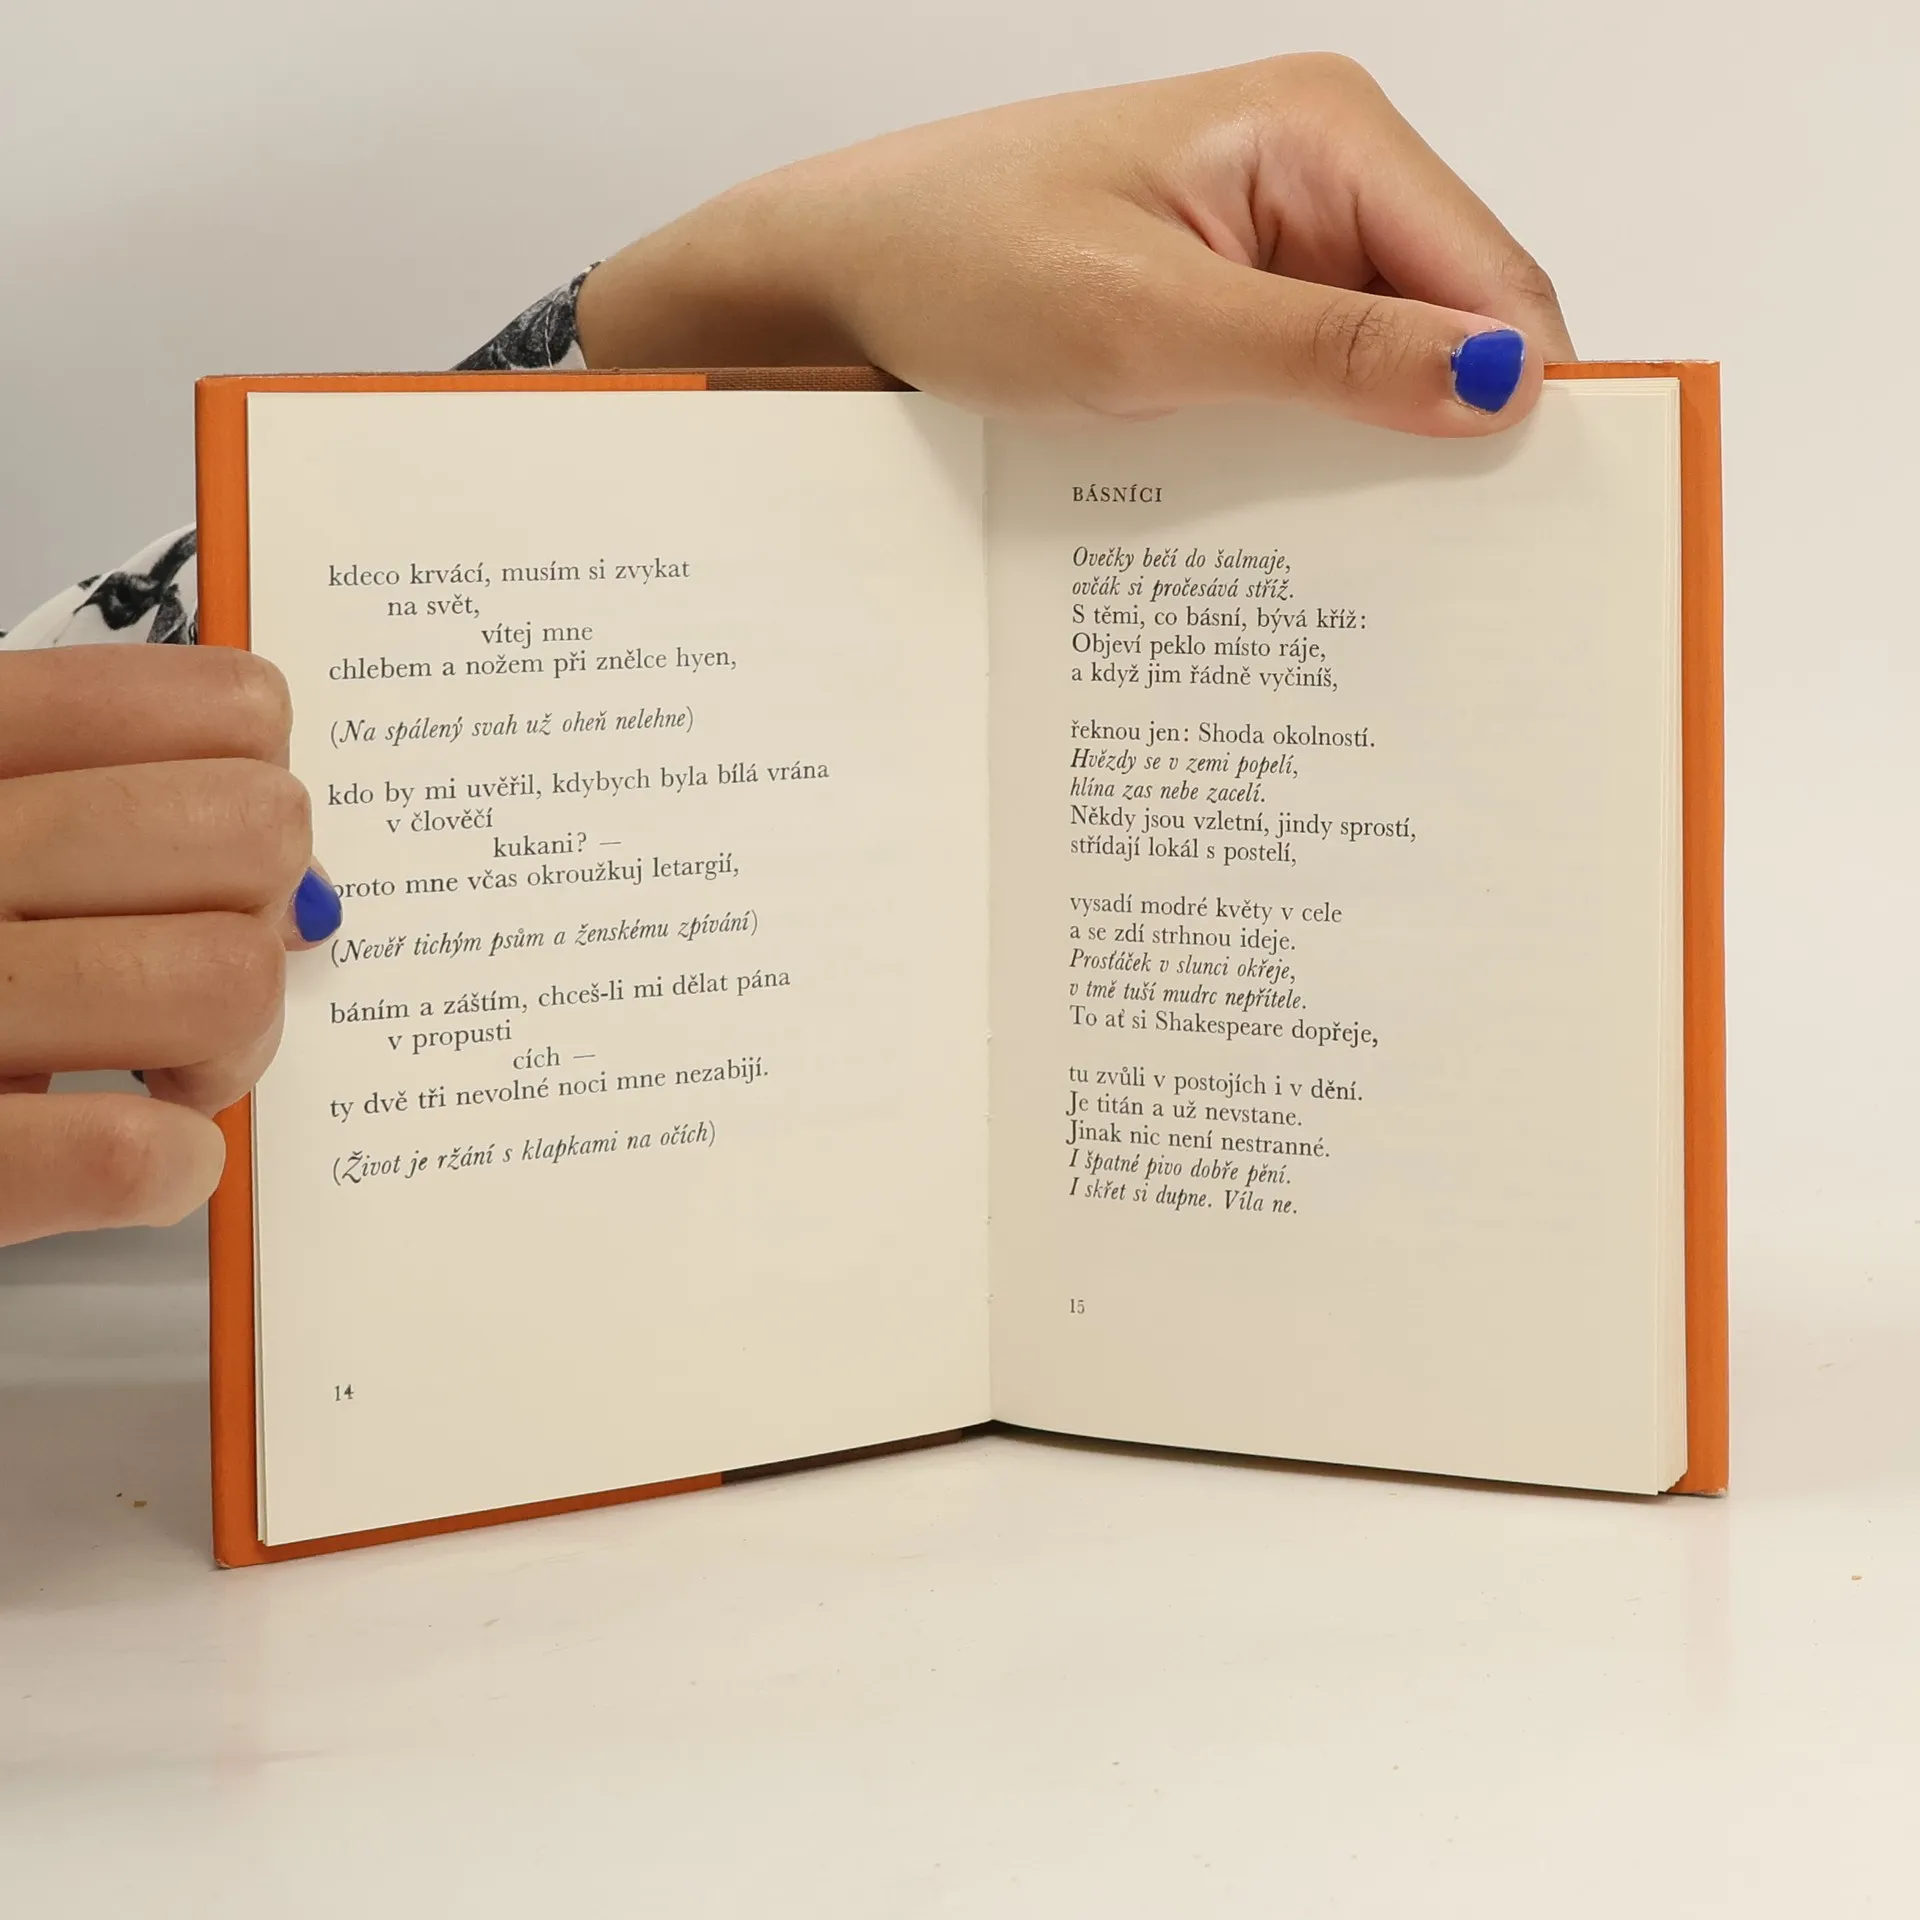 kdeco krvácí, musím si zvykat
na svět,
vítej mne
chlebem a nožem při znělce hyen,
(Na spálený svah už oheň nelehne)
kdo by mi uvěřil, kdybych byla bílá vrána
v člověčí
kukani? —
proto mne včas okroužkuj letargií,
(Nevěř tichým psům a ženskému zpívání)
báním a záštím, chceš-li mi dělat pána
v propusti
cích —
ty dvě tři nevolné noci mne nezabijí.
(Život je ržání s klapkami na očích)
14
BÁSNÍCI
Ovečky bečí do šalmaje,
ovčák si pročesává stříž.
S těmi, co básní, bývá kříž:
Objeví peklo místo ráje,
a když jim řádně vyčiníš,
řeknou jen: Shoda okolností.
Hvězdy se v zemi popelí,
hlína zas nebe zacelí.
Někdy jsou vzletní, jindy sprostí,
střídají lokál s postelí,
vysadí modré květy v cele
a se zdí strhnou ideje.
Prosťáček v slunci okřeje,
v tmě tuší mudrc nepřítele.
To ať si Shakespeare dopřeje,
tu zvůli v postojích i v dění.
Je titán a už nevstane.
Jinak nic není nestranné.
I špatné pivo dobře pění.
I skřet si dupne. Víla ne.
15